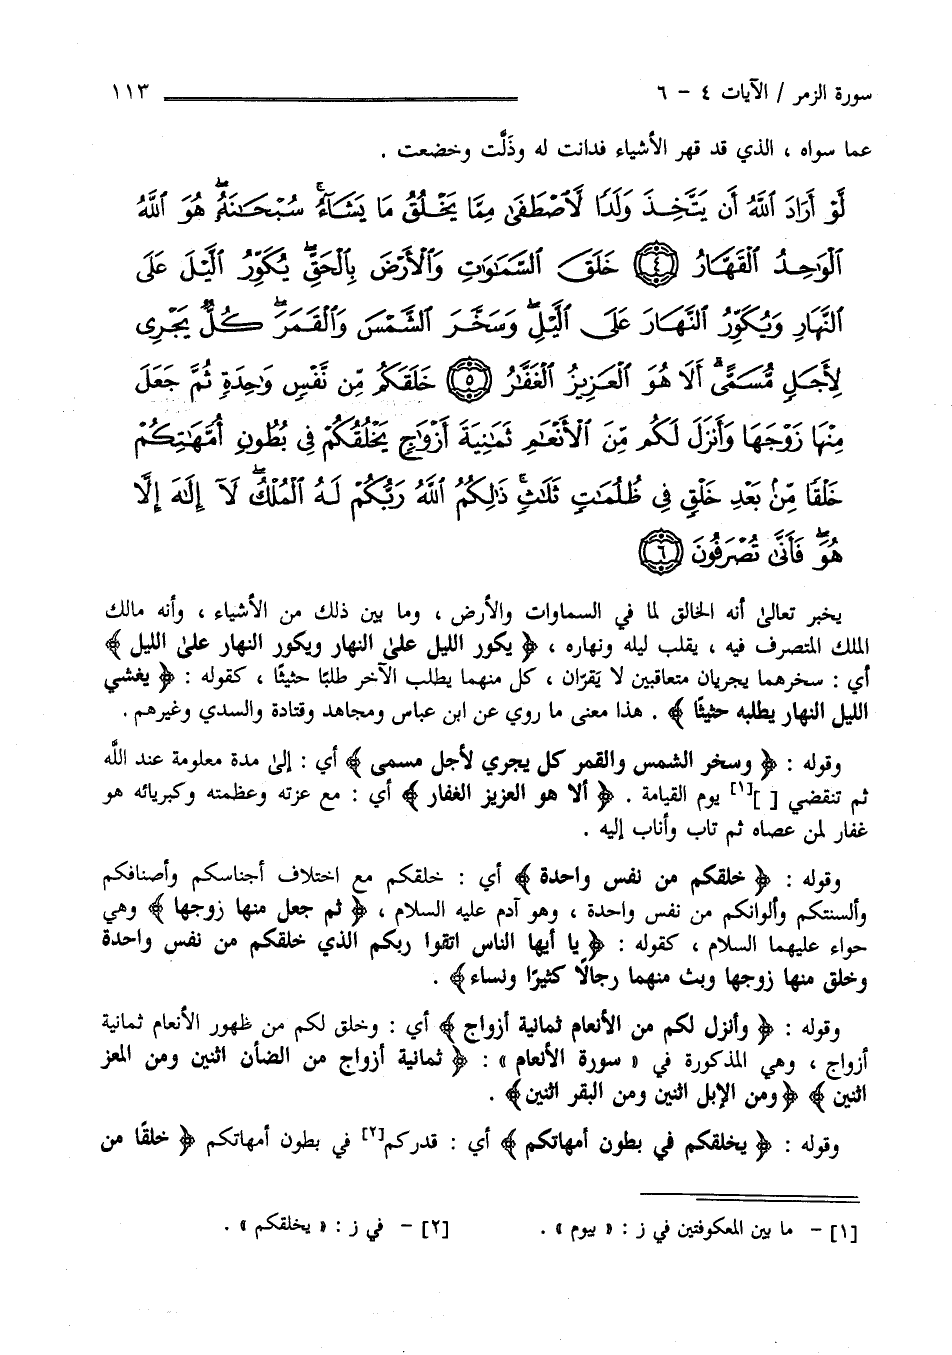 سورة الزمر / الآيات ٤ - ٦ ١١٣
عما سواه ، الذي قد قهر الأشياء فدانت له وذَلَّت وخضعت .
لَّوْ أَرَادَ ٱللَّهُ أَن يَتَّخِذَ وَلَدًا لَّٱصْطَفَىٰ مِمَّا يَخْلُقُ مَا يَشَآءُ ۚ سُبْحَـٰنَهُۥ ۖ هُوَ ٱللَّهُ
ٱلْوَٰحِدُ ٱلْقَهَّارُ ﴿٤﴾ خَلَقَ ٱلسَّمَـٰوَٰتِ وَٱلْأَرْضَ بِٱلْحَقِّ ۖ يُكَوِّرُ ٱلَّيْلَ عَلَى
ٱلنَّهَارِ وَيُكَوِّرُ ٱلنَّهَارَ عَلَى ٱلَّيْلِ ۖ وَسَخَّرَ ٱلشَّمْسَ وَٱلْقَمَرَ ۖ كُلٌّ يَجْرِى
لِأَجَلٍ مُّسَمًّى ۗ أَلَا هُوَ ٱلْعَزِيزُ ٱلْغَفَّـٰرُ ﴿٥﴾ خَلَقَكُم مِّن نَّفْسٍ وَٰحِدَةٍ ثُمَّ جَعَلَ
مِنْهَا زَوْجَهَا وَأَنزَلَ لَكُم مِّنَ ٱلْأَنْعَـٰمِ ثَمَـٰنِيَةَ أَزْوَٰجٍ ۚ يَخْلُقُكُمْ فِى بُطُونِ أُمَّهَـٰتِكُمْ
خَلْقًا مِّنۢ بَعْدِ خَلْقٍ فِى ظُلُمَـٰتٍ ثَلَـٰثٍ ۚ ذَٰلِكُمُ ٱللَّهُ رَبُّكُمْ لَهُ ٱلْمُلْكُ ۖ لَآ إِلَـٰهَ إِلَّا
هُوَ ۖ فَأَنَّىٰ تُصْرَفُونَ ﴿٦﴾
يخبر تعالىٰ أنه الخالق لما في السماوات والأرض ، وما بين ذلك من الأشياء ، وأنه مالك
الملك المتصرف فيه ، يقلب ليله ونهاره ، ﴿ يكور الليل علىٰ النهار ويكور النهار علىٰ الليل ﴾
أي : سخرهما يجريان متعاقبين لا يَقرّان ، كل منهما يطلب الآخر طلبًا حثيثًا ، كقوله : ﴿ يغشي
الليل النهار يطلبه حثيثًا ﴾ . هذا معنى ما روي عن ابن عباس ومجاهد وقتادة والسدي وغيرهم .
وقوله : ﴿ وسخر الشمس والقمر كل يجري لأجل مسمى ﴾ أي : إلىٰ مدة معلومة عند اللَّه
ثم تنقضي [ ][١] يوم القيامة . ﴿ ألا هو العزيز الغفار ﴾ أي : مع عزته وعظمته وكبريائه هو
غفار لمن عصاه ثم تاب وأناب إليه .
وقوله : ﴿ خلقكم من نفس واحدة ﴾ أي : خلقكم مع اختلاف أجناسكم وأصنافكم
وألسنتكم وألوانكم من نفس واحدة ، وهو آدم عليه السلام ، ﴿ ثم جعل منها زوجها ﴾ وهي
حواء عليهما السلام ، كقوله : ﴿ يا أيها الناس اتقوا ربكم الذي خلقكم من نفس واحدة
وخلق منها زوجها وبث منهما رجالًا كثيرًا ونساء﴾ .
وقوله : ﴿ وأنزل لكم من الأنعام ثمانية أزواج ﴾ أي : وخلق لكم من ظهور الأنعام ثمانية
أزواج ، وهي المذكورة في « سورة الأنعام » : ﴿ ثمانية أزواج من الضأن اثنين ومن المعز
اثنين ﴾ ﴿ومن الإبل اثنين ومن البقر اثنين﴾ .
وقوله : ﴿ يخلقكم في بطون أمهاتكم ﴾ أي : قدركم[٢] في بطون أمهاتكم ﴿ خلقًا من
[١] - ما بين المعكوفتين في ز : « بيوم » . [٢] - في ز : « يخلقكم » .